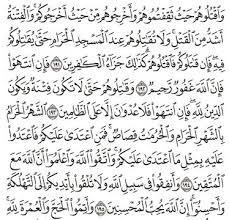 وَٱقْتُلُوهُمْ حَيْثُ ثَقِفْتُمُوهُمْ وَأَخْرِجُوهُم مِّنْ حَيْثُ أَخْرَجُوكُمْ وَٱلْفِتْنَةُ
أَشَدُّ مِنَ ٱلْقَتْلِ وَلَا تُقَٰتِلُوهُمْ عِندَ ٱلْمَسْجِدِ ٱلْحَرَامِ حَتَّىٰ يُقَٰتِلُوكُمْ
فِيهِ فَإِن قَٰتَلُوكُمْ فَٱقْتُلُوهُمْ كَذَٰلِكَ جَزَآءُ ٱلْكَٰفِرِينَ ١٩١ فَإِنِ ٱنتَهَوْا۟
فَإِنَّ ٱللَّهَ غَفُورٌ رَّحِيمٌ ١٩٢ وَقَٰتِلُوهُمْ حَتَّىٰ لَا تَكُونَ فِتْنَةٌ وَيَكُونَ
ٱلدِّينُ لِلَّهِ فَإِنِ ٱنتَهَوْا۟ فَلَا عُدْوَٰنَ إِلَّا عَلَى ٱلظَّٰلِمِينَ ١٩٣ ٱلشَّهْرُ ٱلْحَرَامُ
بِٱلشَّهْرِ ٱلْحَرَامِ وَٱلْحُرُمَٰتُ قِصَاصٌ فَمَنِ ٱعْتَدَىٰ عَلَيْكُمْ فَٱعْتَدُوا۟
عَلَيْهِ بِمِثْلِ مَا ٱعْتَدَىٰ عَلَيْكُمْ وَٱتَّقُوا۟ ٱللَّهَ وَٱعْلَمُوٓا۟ أَنَّ ٱللَّهَ مَعَ
ٱلْمُتَّقِينَ ١٩٤ وَأَنفِقُوا۟ فِى سَبِيلِ ٱللَّهِ وَلَا تُلْقُوا۟ بِأَيْدِيكُمْ إِلَى ٱلتَّهْلُكَةِ
وَأَحْسِنُوٓا۟ إِنَّ ٱللَّهَ يُحِبُّ ٱلْمُحْسِنِينَ ١٩٥ وَأَتِمُّوا۟ ٱلْحَجَّ وَٱلْعُمْرَةَ لِلَّهِ